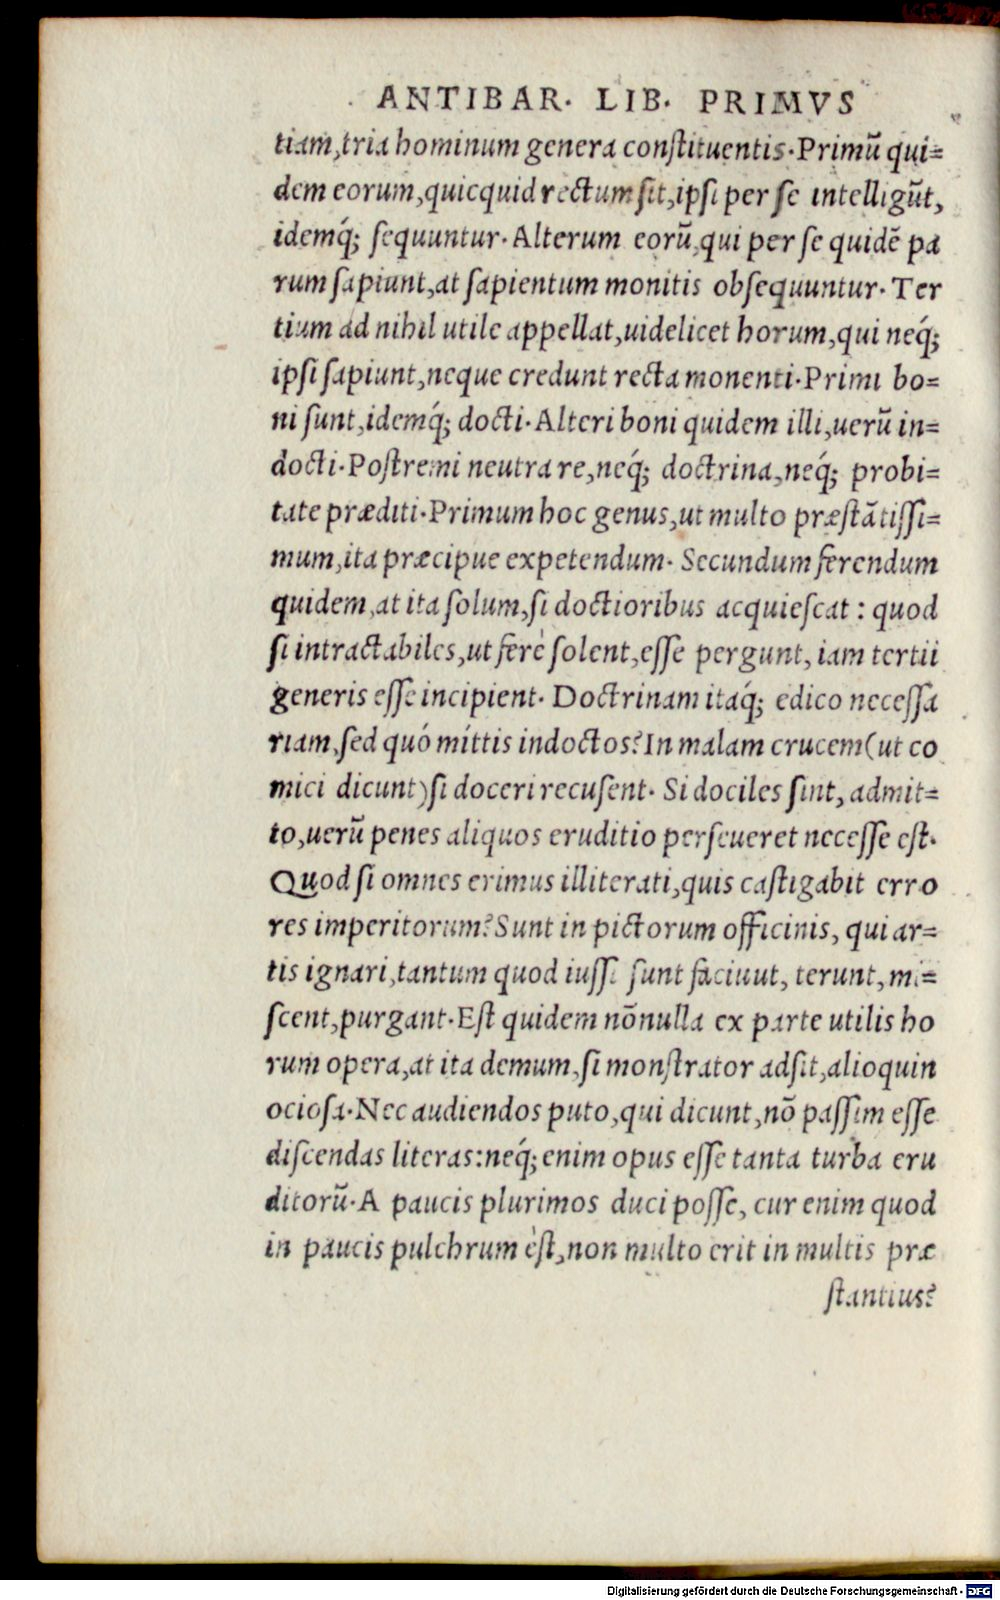 ANTIBAR· LIB· PRIMVS
tiam,tria hominum genera constituentis·Primū qui=
dem eorum,quicquid rectum sit,ipsi per se intelligūt,
idemq́; sequuntur·Alterum eorū,qui per se quidē pa
rum sapiunt,at sapientum monitis obsequuntur·Ter
tium ad nihil utile appellat,uidelicet horum,qui neq́;
ipsi sapiunt,neque credunt recta monenti·Primi bo=
ni sunt,idemq́; docti·Alteri boni quidem illi,uerū in=
docti·Postremi neutra re,neq́; doctrina,neq́; probi=
tate præditi·Primum hoc genus,ut multo præstātissi=
mum,ita præcipue expetendum· Secundum ferendum
quidem,at ita solum,si doctioribus acquiescat : quod
si intractabiles,ut ferè solent,esse pergunt, iam tertii
generis esse incipient· Doctrinam itaq́; edico necessa
riam,sed quó míttis indoctos?In malam crucem(ut co
mici dicunt)si doceri recusent· Si dociles sint, admit=
to,uerū penes aliquos eruditio perseueret necesse est·
Quod si omnes erimus illiterati,quis castigabit erro
res imperitorum?Sunt in pictorum officinis, qui ar=
tis ignari,tantum quod iussi sunt faciuut, terunt, mi=
scent,purgant·Est quidem nōnulla ex parte utilis ho
rum opera,at ita demum,si monstrator adsit,alioquin
ociosa·Nec audiendos puto,qui dicunt,nō passim esse
discendas literas:neq́;enim opus esse tanta turba eru
ditorū·A paucis plurimos duci posse, cur enim quod
in paucis pulchrum èst,non multo erit in multis præ
stantius?
Digitalisierung gefördert durch die Deutsche Forschungsgemeinschaft - DFG